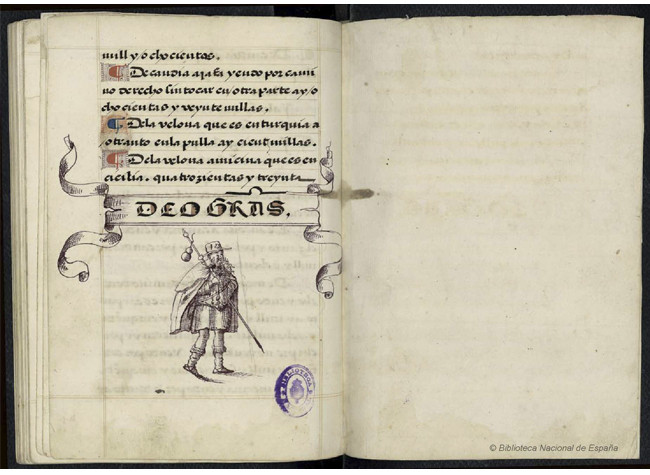 mill y ochocientas.
De candia a jafa yendo por cami
no derecho sin tocar en otra parte ay o
chocientas y veynte millas.
Dela velona que es en turquia a
otranto en la pulla ay cient millas.
Dela velona a micina que es en
cicilia. quatrozientas y treynta
DEO GRAS.
© Biblioteca Nacional de España